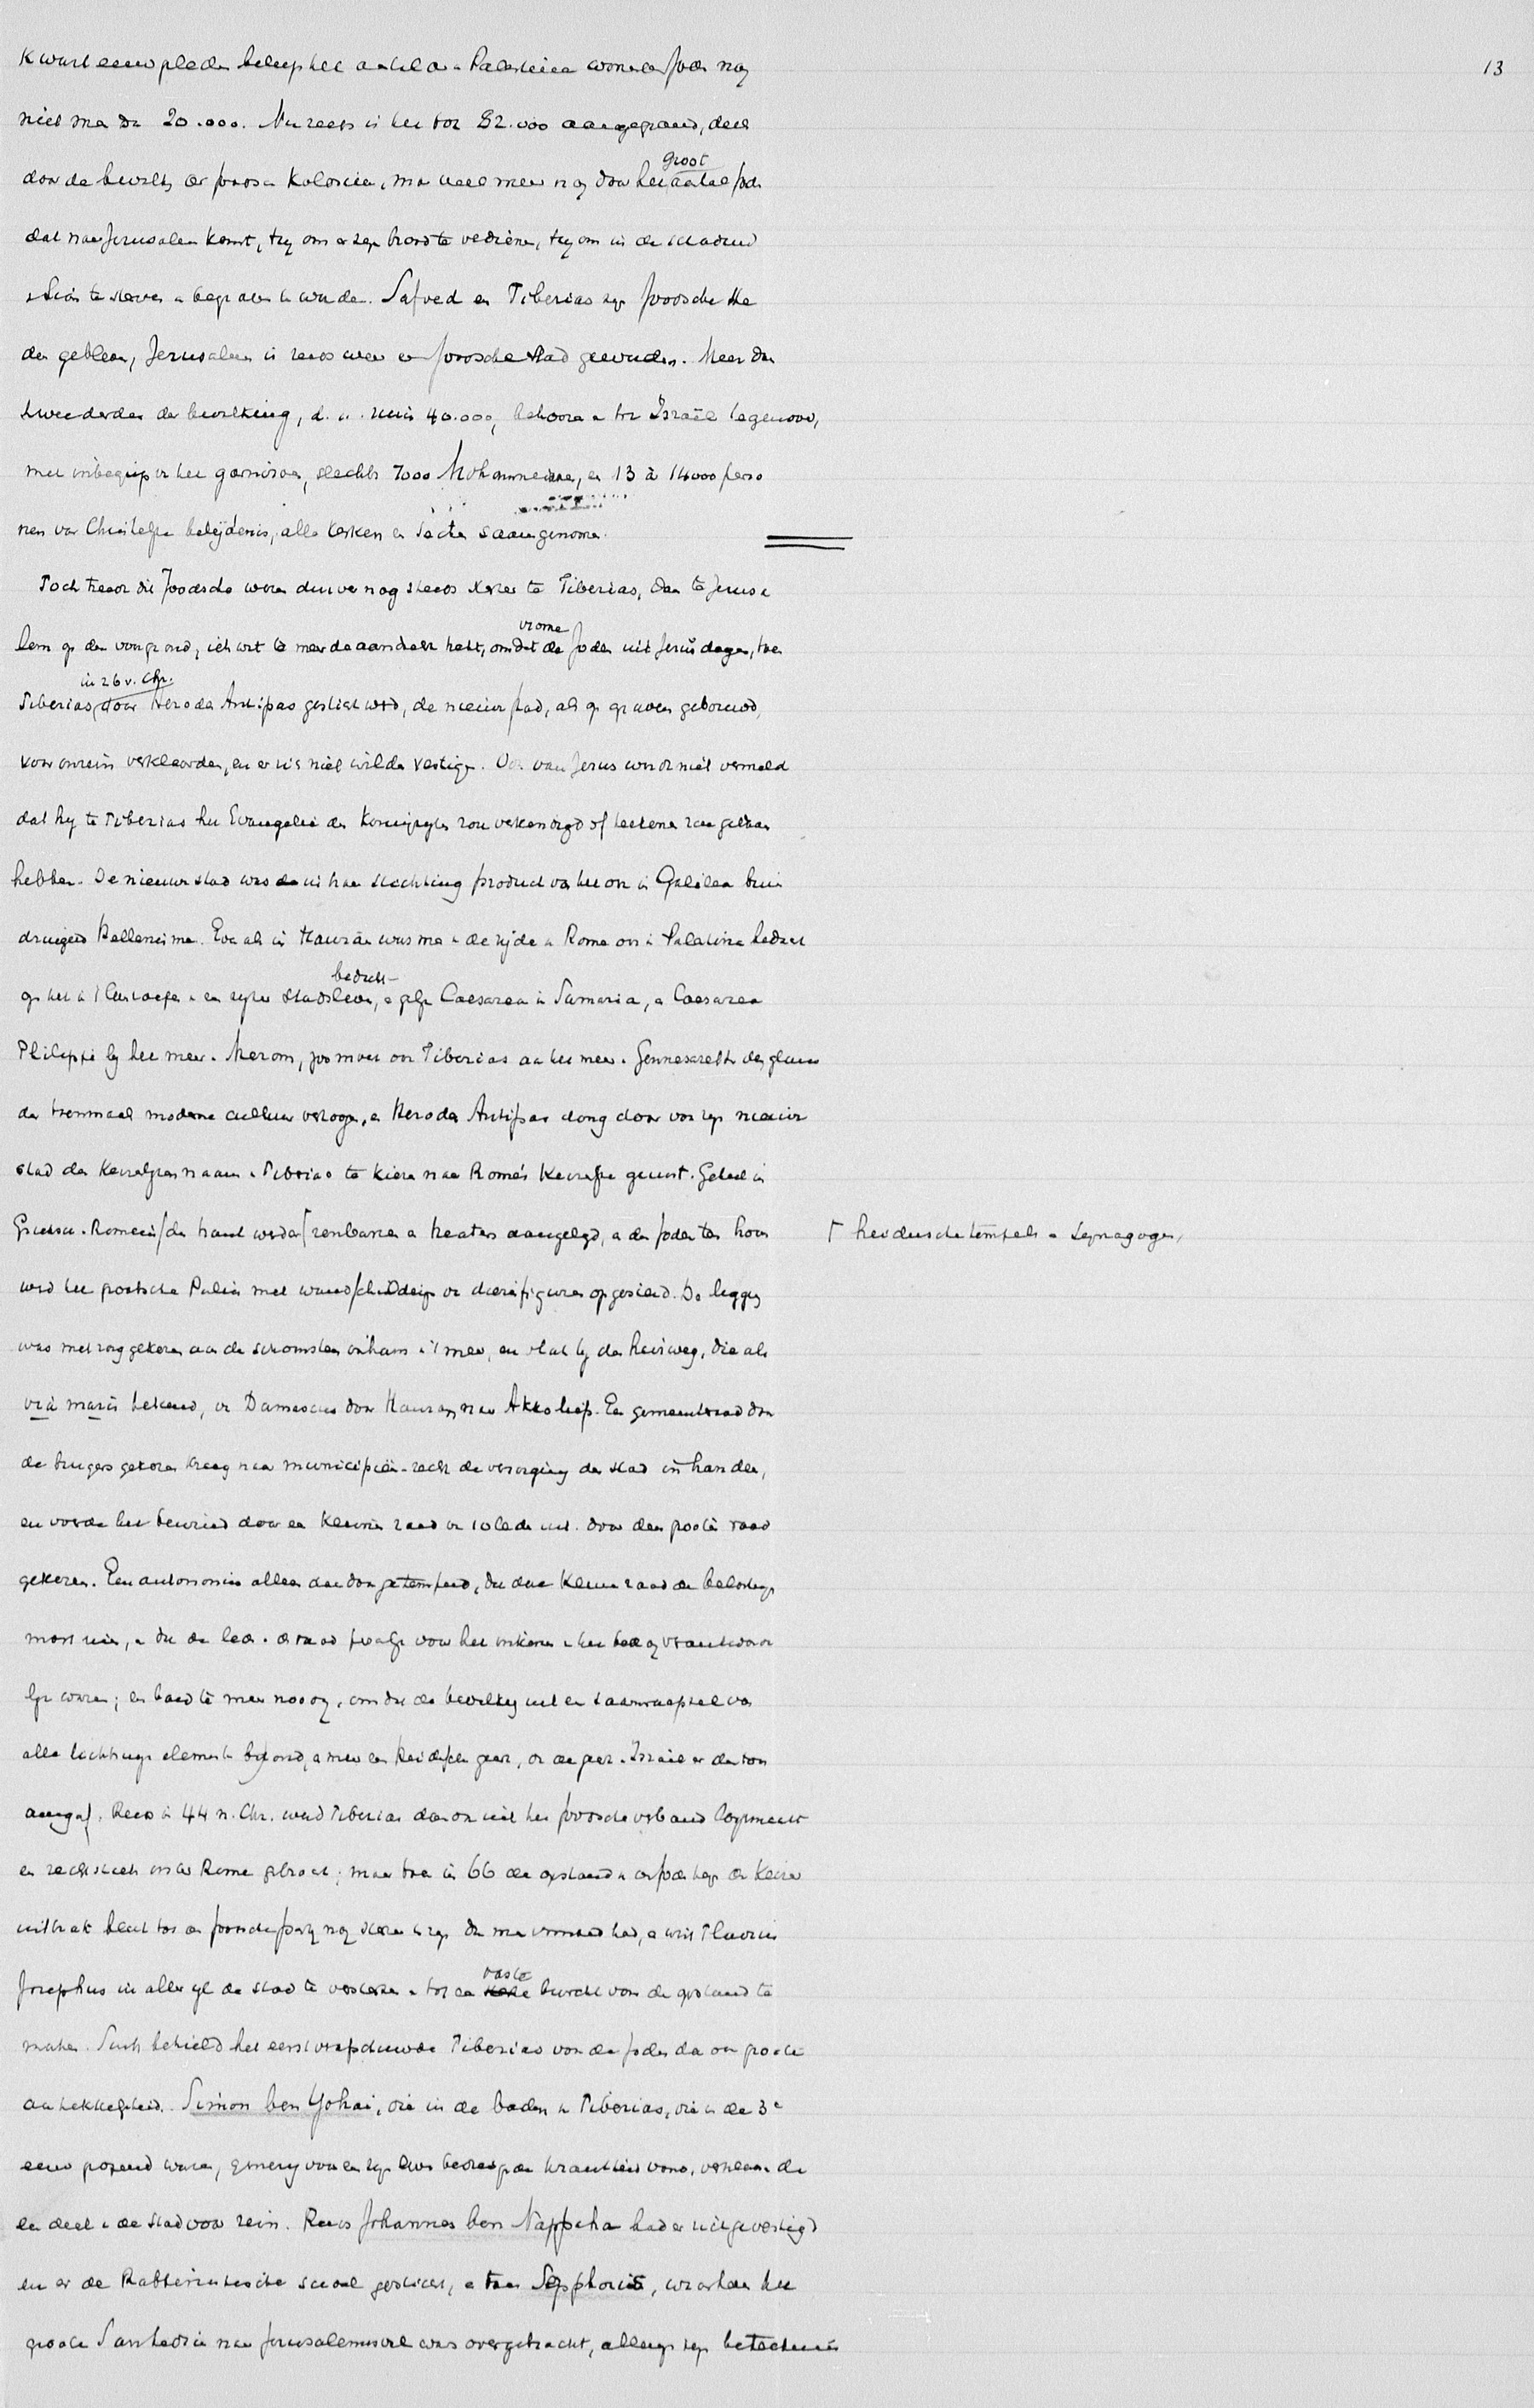 13
kwart eeuw geleden beliep het aantal in Palestina wonende Joden nog
niet meer dan 20.000. Nu reeds is het tot 82.000 aangegroeid, deels
door de bevolking der Joodsche Koloniën, maar veel meer nog door het groot aantal Joden
dat naar Jerusalem komt, hetzij om er zijn brood te verdienen, hetzij om in de schaduw
van Sion te sterven en begraven te worden. Safved en Tiberias zijn Joodsche ste
den gebleven, Jerusalem is reeds weer een Joodsche stad geworden. Meer dan
tweederden der bevolking, d. i. ruim 40.000, behooren tot Israël tegenover,
met inbegrip van het garnizoen, slechts 7000 Mohammedanen, en 13 à 14000 perso
nen van Christelijke belijdenis, alle kerken en secten saamgenomen.
Toch treedt die Joodsche nog steeds sterker te Tiberias, dan te Jerusa
lem op den voorgrond, iets wat te meer de aandacht trekt, omdat de vrome Joden uit Jezus' dagen, toen
Tiberias in 26 n. Chr. door Herodes Antipas gesticht werd, de nieuwe stad, als op graven gebouwd,
voor onrein verklaarden, en er zich niet wilden vestigen. Ook van Jezus wordt niet vermeld
dat hij te Tiberias het Evangelie des Koninkrijks zou verkondigd of teekenen zou gedaan
hebben. De nieuwe stad was dan in haar stichting product van het ook in Galilea bin
dringend Hellenisme. Evenals in Hauran was men van de zijde van Rome ook in Palestina bedacht
op het in 't leven roepen van een rijker stadsleven, en gelijk Caesarea in Samaria, en Caesarea
Philippi bij het meer van Merom, zoo moest ook Tiberias aan het meer van Gennesareth den glans
der toenmaals moderne cultuur vertoonen, en Herodes Antipas dong door voor zijn nieuwe
stad den Keizerlijken naam van Tiberias te kiezen naar Rome's Keizerlijke gunst. Geheel in
Grieksch-Romeinschen trant werden ⌈ renbanen en theaters aangelegd, en den Joden ten hoon
⌈ heidensche tempels en synagogen,
werd het grootsche Paleis met wandschilderingen van dierenfiguren opgesierd. De ligging
was met zorg gekozen aan de schoonsten inham van 't meer, en vlak bij den heirweg, die als
via maris bekend, van Damascus door Hauran naar Akko liep. Een gemeenteraad door
de burgers gekozen kreeg naar municipiën-recht de verzorging der stad in handen,
en voerde het bewind door een kleinen raad van 10 leden uit door den grooten raad
gekozen. Een autonomie alleen daardoor getemperd, dat deze kleine raad de belastingen
moest innen, en dat de leden van den raad persoonlijk voor het inkomen van het bedrag verantwoorde
lijk waren; een band te meer noodig, omdat de bevolking uit een saamraapsel van
alle luchthartige elementen bestond, en meer een heidenschen geest, dan de geest van Israël er den toon
aangaf. Reeds in 44 n. Chr. werd Tiberias dan ook uit het Joodsche verband losgemaakt
en rechtstreeks onder Rome gebracht; maar toen in 66 de opstand der Joden tegen den Keizer
uitbrak bleek toch de Joodsche partij nog sterker te zijn dan men vermoed had, en wist Flavius
Josephus in aller ijl de stad te versterken en tot een vaste burcht voor den opstand te
maken. Sinds behield het eerst verafschuwde Tiberias voor de Joden dan ook groote
aantrekkelijkheid. Simon ben Yohai, die in de baden van Tiberias, die in de 3e
eeuw gezocht waren, genezing voor een zijn leven bedreigende krankheid vond, verklaarde
een deel van de stad voor rein. Reeds Johannes ben Nappcha had er zich gevestigd
en er de Rabbinistische school gesticht, en toen Sepphoris, waarheen het
groote Sanhedrin na Jerusalems val was overgebracht, allengs zijn beteekenis